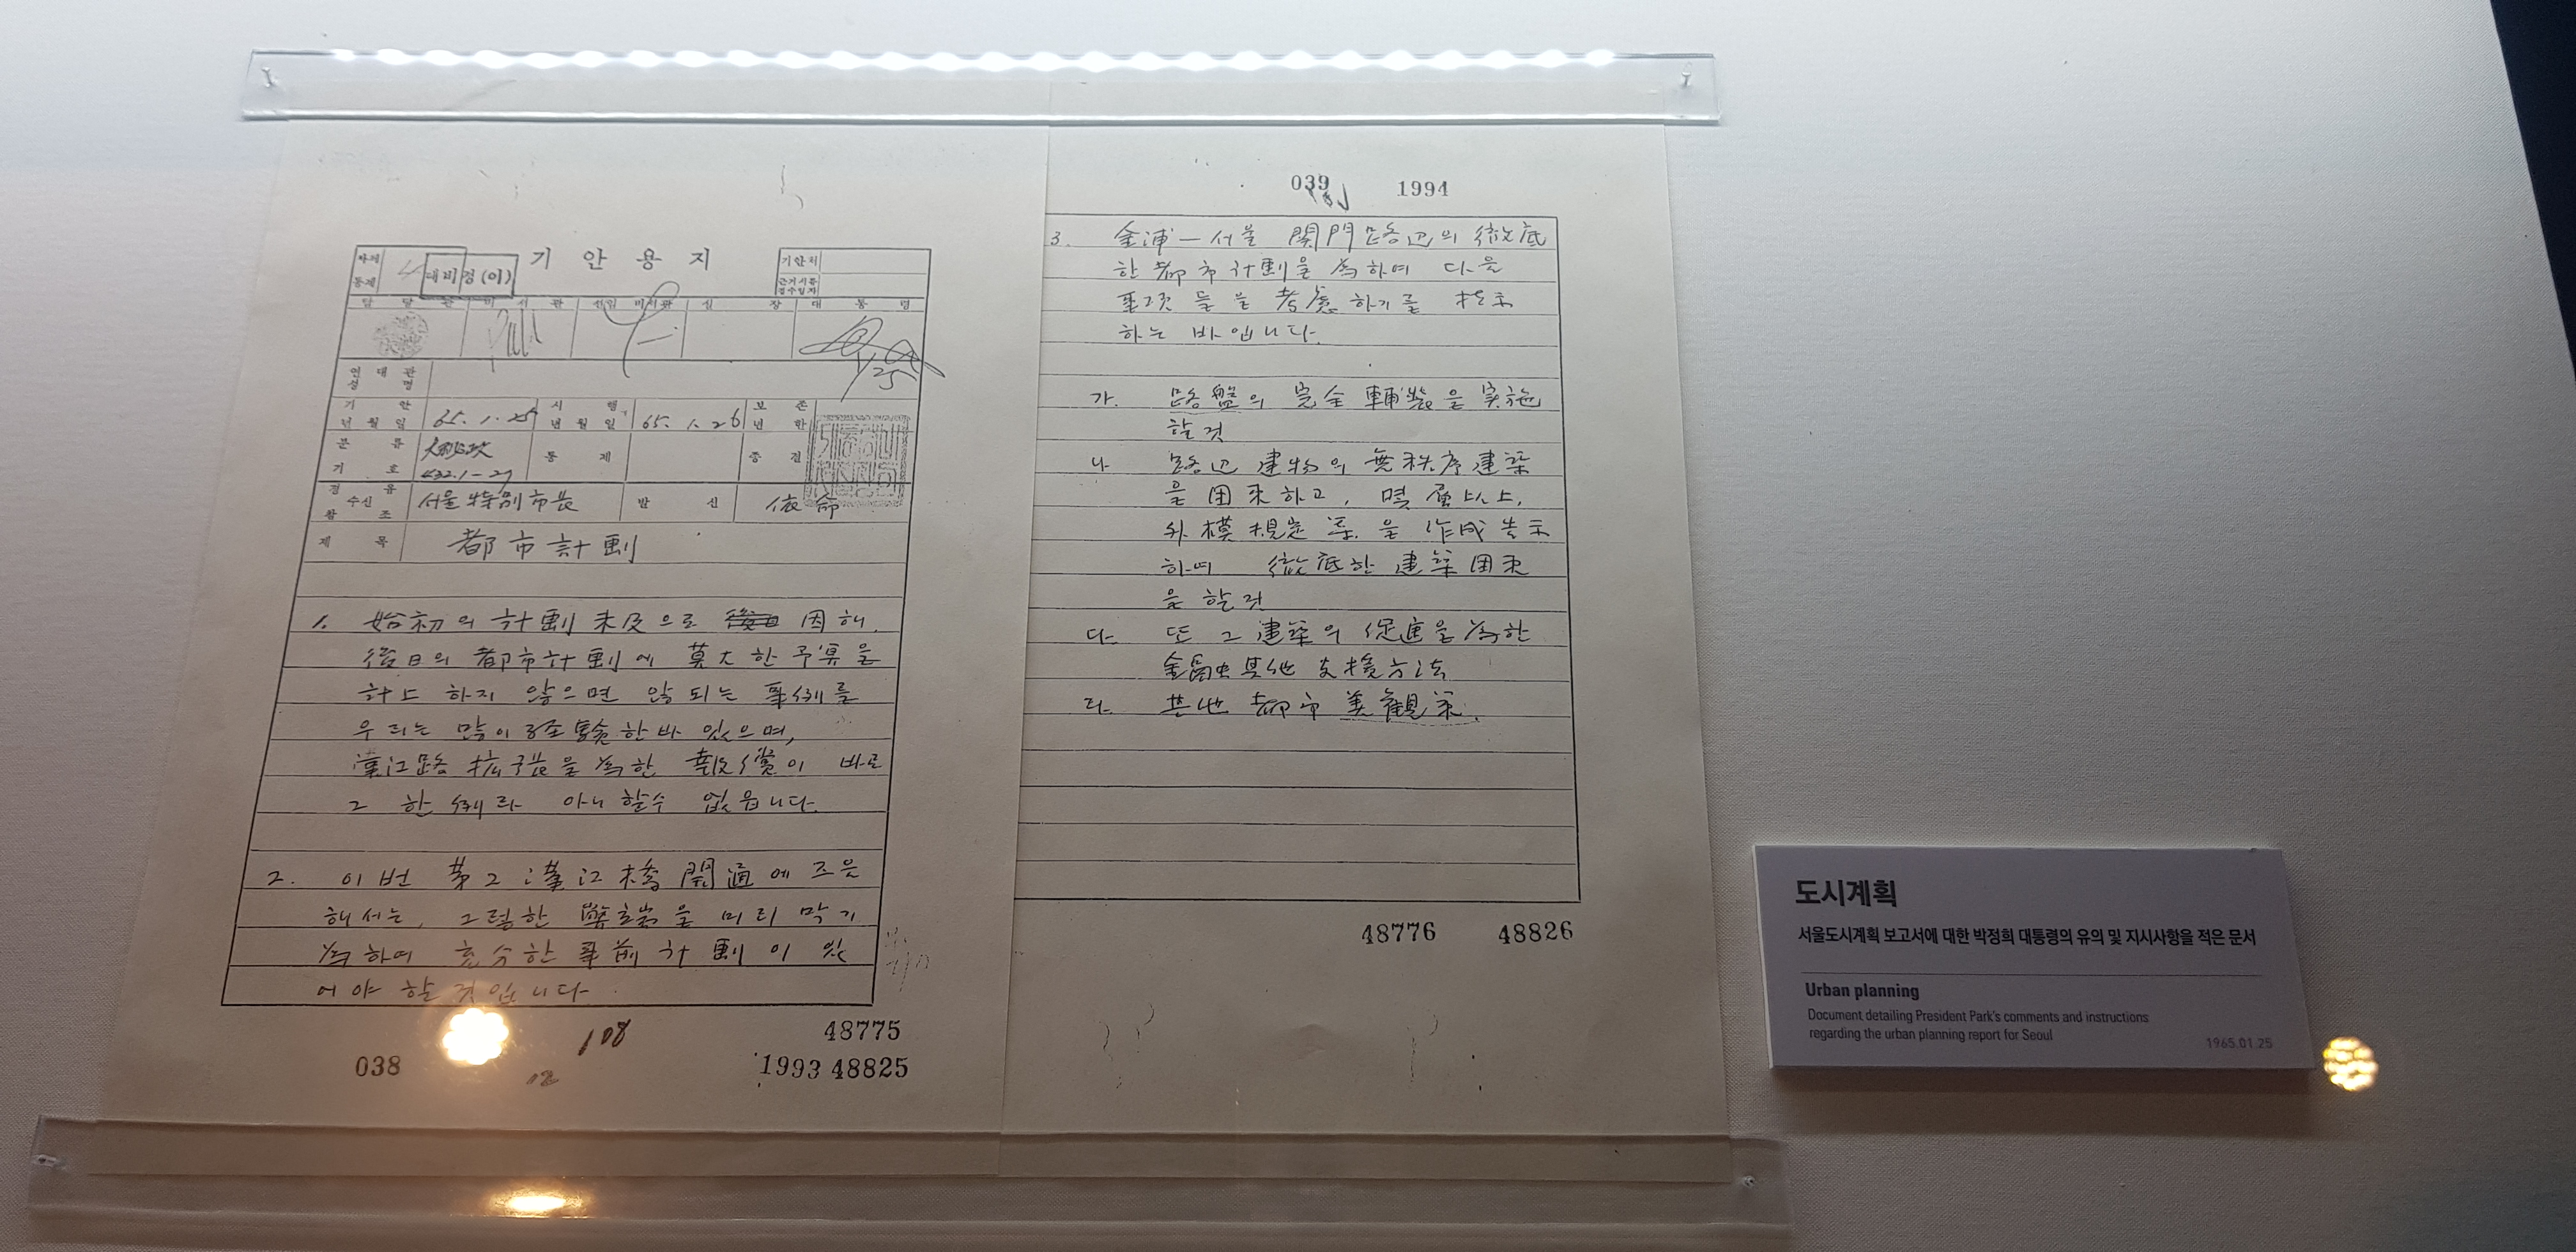 기안용지
대비정(이)
기안처
담당관 비서관 선임비서관 실장 대통령
기안년월일 65. 1. 25 시행년월일 65. 1. 26 보존년한
분류기호 432.1-27 통제 종결
경유수신참조 서울特別市長 발신 依命
제목 都市計劃
1. 始初의 計劃未及으로 因해
後日의 都市計劃에 莫大한 予算을
計上하지 않으면 않되는 事例를
우리는 많이 經驗한바 있으며,
漢江路 拡張을 為한 報償이 바로
그 한 例라 아니할수 없읍니다.
2. 이번 第2漢江橋 開通에 즈음
해서는, 그렇한 弊端을 미리 막기
為하여 充分한 事前計劃이 있
어야 할것입니다.
108
12
038
48775
1993 48825
039 1994
3. 金浦—서울 関門路辺의 徹底
한 都市計劃을 為하여 다음
事項들을 考慮하기를 指示
하는 바입니다.
가. 路盤의 完全鋪装을 実施
할것
나. 路辺建物의 無秩序建築
을 団束하고, 몇層以上,
外模規定等을 作成告示
하여 徹底한 建築団束
을 할것
다. 또 그 建築의 促進을 為한
金融其他 支援方法
라. 其他 都市美観策.
48776 48826
도시계획
서울도시계획 보고서에 대한 박정희 대통령의 유의 및 지시사항을 적은 문서
Urban planning
Document detailing President Park's comments and instructions
regarding the urban planning report for Seoul
1965.01.25